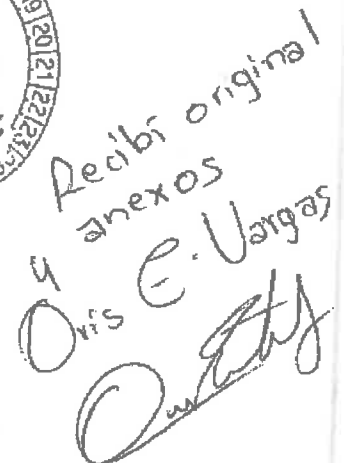 19 20 21 22 23
Recibí original
y anexos
Oris E. Vargas